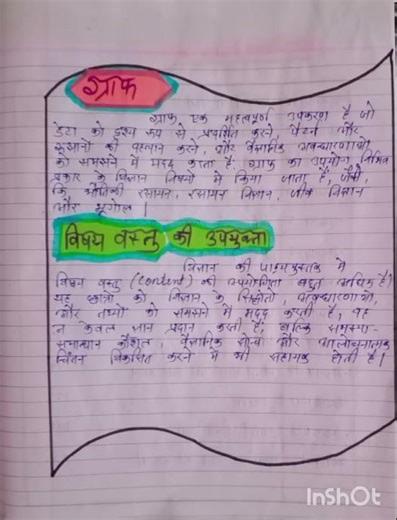 ग्राफ
ग्राफ एक महत्वपूर्ण उपकरण है जो
डेटा को दृश्य रूप से प्रदर्शित करने, पैटर्न और
रूझानों की पहचान करने, और वैज्ञानिक अवधारणाओं
को समझने में मदद करता है. ग्राफ का उपयोग विभिन्न
प्रकार के विज्ञान विषयों में किया जाता है, जैसे
कि भौतिकी रसायन, रसायन विज्ञान, जीव विज्ञान
और भूगोल |
विषय वस्तु की उपयुक्ता
विज्ञान की पाठ्यपुस्तक में
विषय वस्तु (content) की उपयोगिता बहुत अधिक है।
यह छात्रों को विज्ञान के सिद्धांतों, अवधारणाओं,
और तथ्यों को समझने में मदद करती है, यह
न केवल ज्ञान प्रदान करती है, बल्कि समस्या-
समाधान कौशल, वैज्ञानिक सोच और आलोचनात्मक
चिंतन विकसित करने में भी सहायक होती है।
InShOt